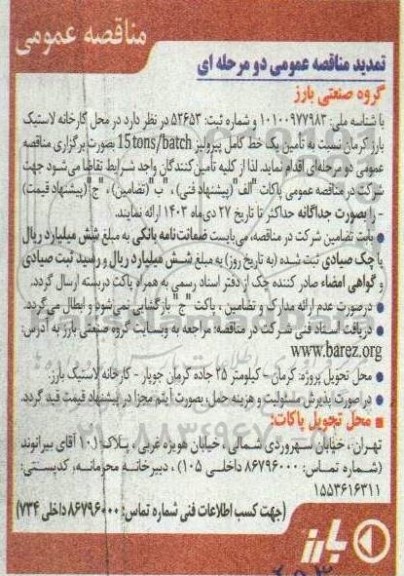 مناقصه عمومی
تمدید مناقصه عمومی دو مرحله ای
گروه صنعتی بارز
با شناسه ملی: ۱۰۱۰۰۹۷۷۹۸۲ و شماره ثبت: ۵۲۶۵۳ در نظر دارد در محل کارخانه لاستیک
بارز کرمان نسبت به تامین یک خط کامل پیرولیز 15tons/batch بصورت برگزاری مناقصه
عمومی دو مرحله‌ای اقدام نماید. لذا از کلیه تأمین کنندگان واجد شرایط تقاضا می‌شود جهت
شرکت در مناقصه عمومی پاکات "الف"(پیشنهاد فنی) ، "ب"(تضامین) ، "ج"(پیشنهاد قیمت)
- را بصورت جداگانه حداکثر تا تاریخ ۲۷ دی‌ماه ۱۴۰۳ ارائه نمایند.
● بابت تضامین شرکت در مناقصه، می‌بایست ضمانت‌نامه بانکی به مبلغ شش میلیارد ریال
یا چک صیادی ثبت شده (به تاریخ روز) به مبلغ شش میلیارد ریال و رسید ثبت صیادی
و گواهی امضاء صادر کننده چک از دفتر اسناد رسمی به همراه پاکت دربسته ارسال گردد.
● درصورت عدم ارائه مدارک و تضامین ، پاکت "ج" بازگشایی نمی‌شود و ابطال می‌گردد.
● دریافت اسناد فنی شرکت در مناقصه: مراجعه به وبسایت گروه صنعتی بارز به آدرس:
www.barez.org
● محل تحویل پروژه: کرمان - کیلومتر ۲۵ جاده کرمان جوپار - کارخانه لاستیک بارز.
● در صورت پذیرش مسئولیت و هزینه حمل، بصورت آیتم مجزا در پیشنهاد قیمت قید گردد.
■ محل تحویل پاکات:
تهران، خیابان سهروردی شمالی، خیابان هویزه غربی، پلاک ۱۰۱ آقای بیرانوند
(شماره تماس: ۸۶۷۹۶۰۰۰ داخلی ۱۰۵) ، دبیرخانه محرمانه، کدپستی:
۱۵۵۳۶۱۶۳۱۱
(جهت کسب اطلاعات فنی شماره تماس: ۸۶۷۹۶۰۰۰ داخلی ۷۳۴)
بارز